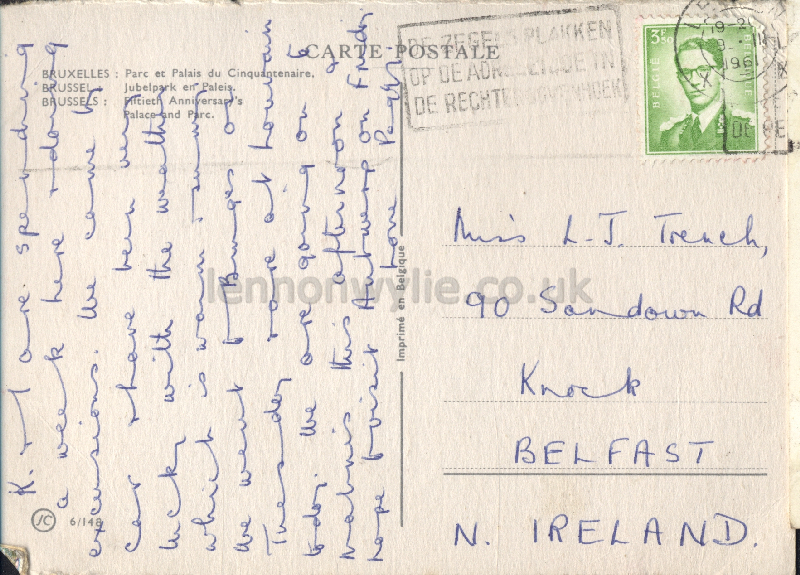 CARTE POSTALE
BRUXELLES : Parc et Palais du Cinquantenaire.
BRUSSEL : Jubelpark en Paleis.
BRUSSELS : Fiftieth Anniversary's
Palace and Parc.
K. & I are spending
a week here & doing
excursions. We came by
car & have been very
lucky with the weather
which is warm & sunny
We went to Bruges on
Tuesday & are at Louvain
today. We are going on to
Malines this afternoon &
hope to visit Antwerp on Friday
Love Peggy.
JC 6/148
Imprimé en Belgique
DE ZEGELS PLAKKEN
OP DE ADRESZIJDE IN
DE RECHTERBOVENHOEK
3F50
BELGIE BELGIQUE
19-20
196
DE RE
Miss L-J. Trench,
90 Sandown Rd
Knock
BELFAST
N. IRELAND.
lennonwylie.co.uk